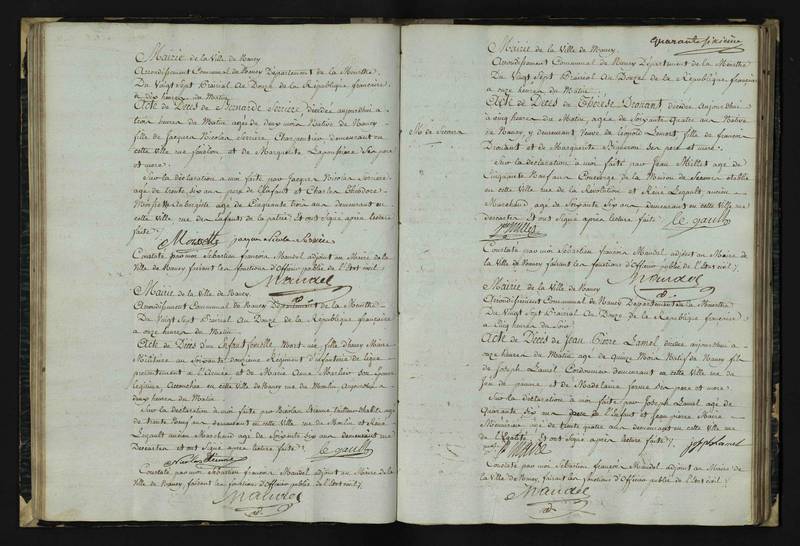 Mairie de la Ville de Nancy
Arrondissement Communal de Nancy Département de la Meurthe.
Du Vingt Sept Prairial an Douze de la République française
a dix heures du Matin
Acte de Décès de Bernarde Serrière décédée aujourd'hui a
trois heures du Matin agée de deux mois Native de Nancy
fille de Jacques Nicolas Serrière, Charpentier demeurant en
cette Ville rue et de Marguerite ses pere
et mere.
Sur la déclaration a moi faite par Jacques Nicolas Serriere
agé de trente six ans pere de l'Enfant et Charles Theodore
agé de Cinquante trois ans demeurant en
cette Ville rue des Enfans de la patrie Et ont Signé après lecture
faite.
Jacques Nicolas Serriere
Constaté par moi Sébastien françois Mandel adjoint au Maire de la
Ville de Nancy faisant les fonctions d'Officier public de l'Etat civil.
Mandel
Mairie de la Ville de Nancy
Arrondissement Communal de Nancy Département de la Meurthe.
Du Vingt Sept Prairial an Douze de la République française
a onze heures du Matin
Acte de Décès d'un Enfant femelle Mort née, fille d'henry
Militaire au Soixante douzième Régiment d'infanterie de ligne
présentement a l'Armée et de Marie Anne son Epouse
légitime, accouchée en cette Ville de Nancy rue du Moulin Aujourd'hui a
deux heures du Matin
Sur la déclaration a moi faite par Nicolas Etienne agé
de trente ans demeurant en cette Ville rue du Moulin et René
Legault ancien Marchand agé de Soixante Six ans demeurant rue
Descartes Et ont Signé après lecture faite. le gault
Nicolas Etienne
Constaté par moi Sébastien françois Mandel adjoint au Maire de la
Ville de Nancy, faisant les fonctions d'Officier public de l'Etat civil.
Mandel
quarante sixieme
Mairie de la Ville de Nancy.
Arrondissement Communal de Nancy Département de la Meurthe
Du Vingt Sept Prairial an Douze de la République française
a onze heures du Matin
Mon de Secours
Acte de Décès de Thérèse Drouant décédée Aujourd'hui
a cinq heures du Matin, agée de Soixante Quatre ans Native
de Nancy y demeurant Veuve de Léopold fille de françois
Drouant et de Marguerite ses pere et mere.
Sur la déclaration a moi faite par Jean Millet agé de
Cinquante Neuf ans Concierge de la Maison de Secours établie
en cette Ville rue de la Révolution et René Legault ancien
Marchand agé de Soixante Six ans demeurant en cette Ville rue
Descartes Et ont Signé après lecture faite. le gault
Millet
Constaté par moi Sébastien françois Mandel adjoint au Maire de
la Ville de Nancy faisant les fonctions d'Officier public de l'Etat civil.
Mandel
Mairie de la Ville de Nancy
Arrondissement Communal de Nancy Département de la Meurthe.
Du Vingt Sept Prairial an Douze de la République française
a Cinq heures du Soir
Acte de Décès de Jean Pierre Lamel décédé aujourd'hui a
onze heures du Matin agé de quinze Mois Natif de Nancy fils
de Joseph Lamel Cordonnier demeurant en cette Ville rue du
jeu de paume et de Madelaine ses pere et mere.
Sur la déclaration a moi faite par Joseph Lamel agé de
Quarante Six ans pere de l'Enfant et Jean pierre Marie
Menuisier agé de trente quatre ans demeurant en cette Ville rue
de l'Egalité. Et ont Signé après lecture faite. joseph lamel
Constaté par moi Sébastien françois Mandel adjoint au Maire de
la Ville de Nancy, faisant les fonctions d'Officier public de l'Etat civil.
Mandel